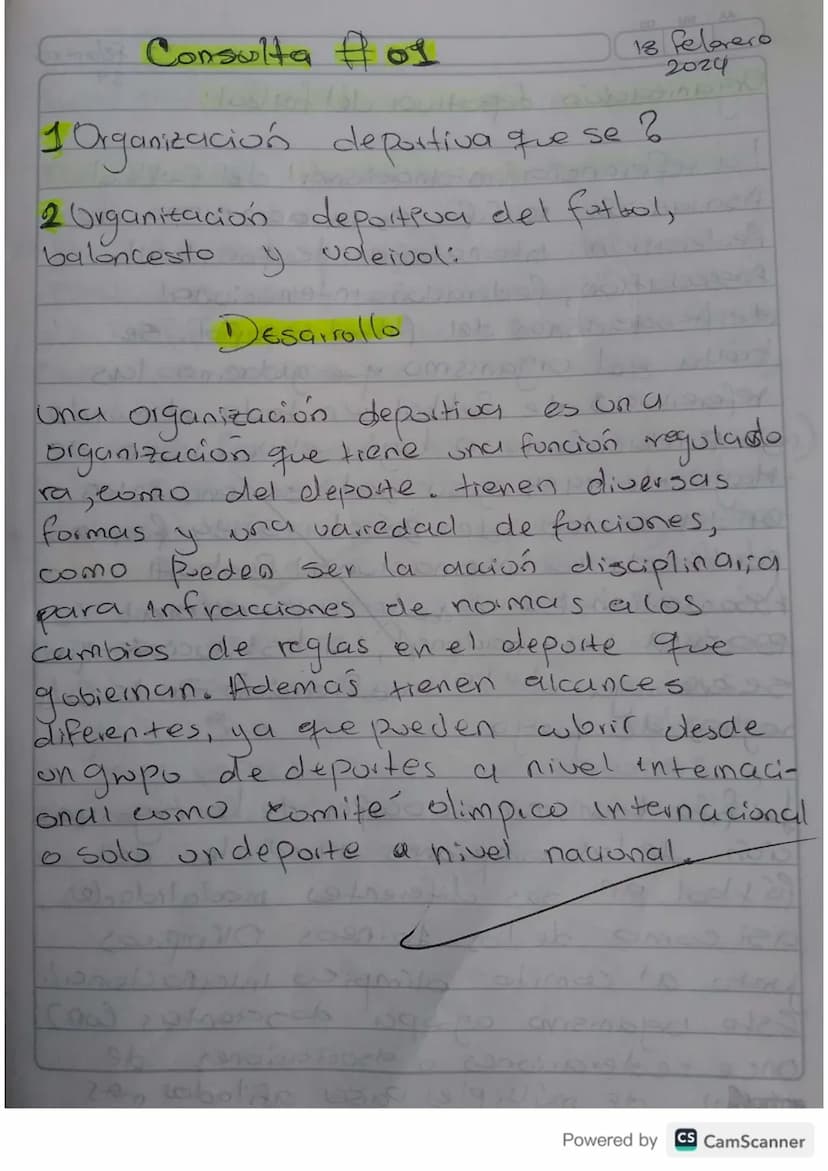 Consulta # 01
18 febrero
2024
1 Organización deportiva que se ?
2 Organización deportiva del fútbol,
baloncesto y voleivol:
Desarrollo
Una organización deportiva es una
organización que tiene una función regulado
ra, como del deporte. tienen diversas
formas y una variedad de funciones,
como Pueden ser la acción disciplinaria
para infracciones de normas a los
cambios de reglas en el deporte que
gobiernan. Además tienen alcances
diferentes, ya que pueden cubrir desde
un grupo de deportes a nivel internaci-
onal como comité olimpico internacional
o solo un deporte a nivel nacional.
Powered by CS CamScanner